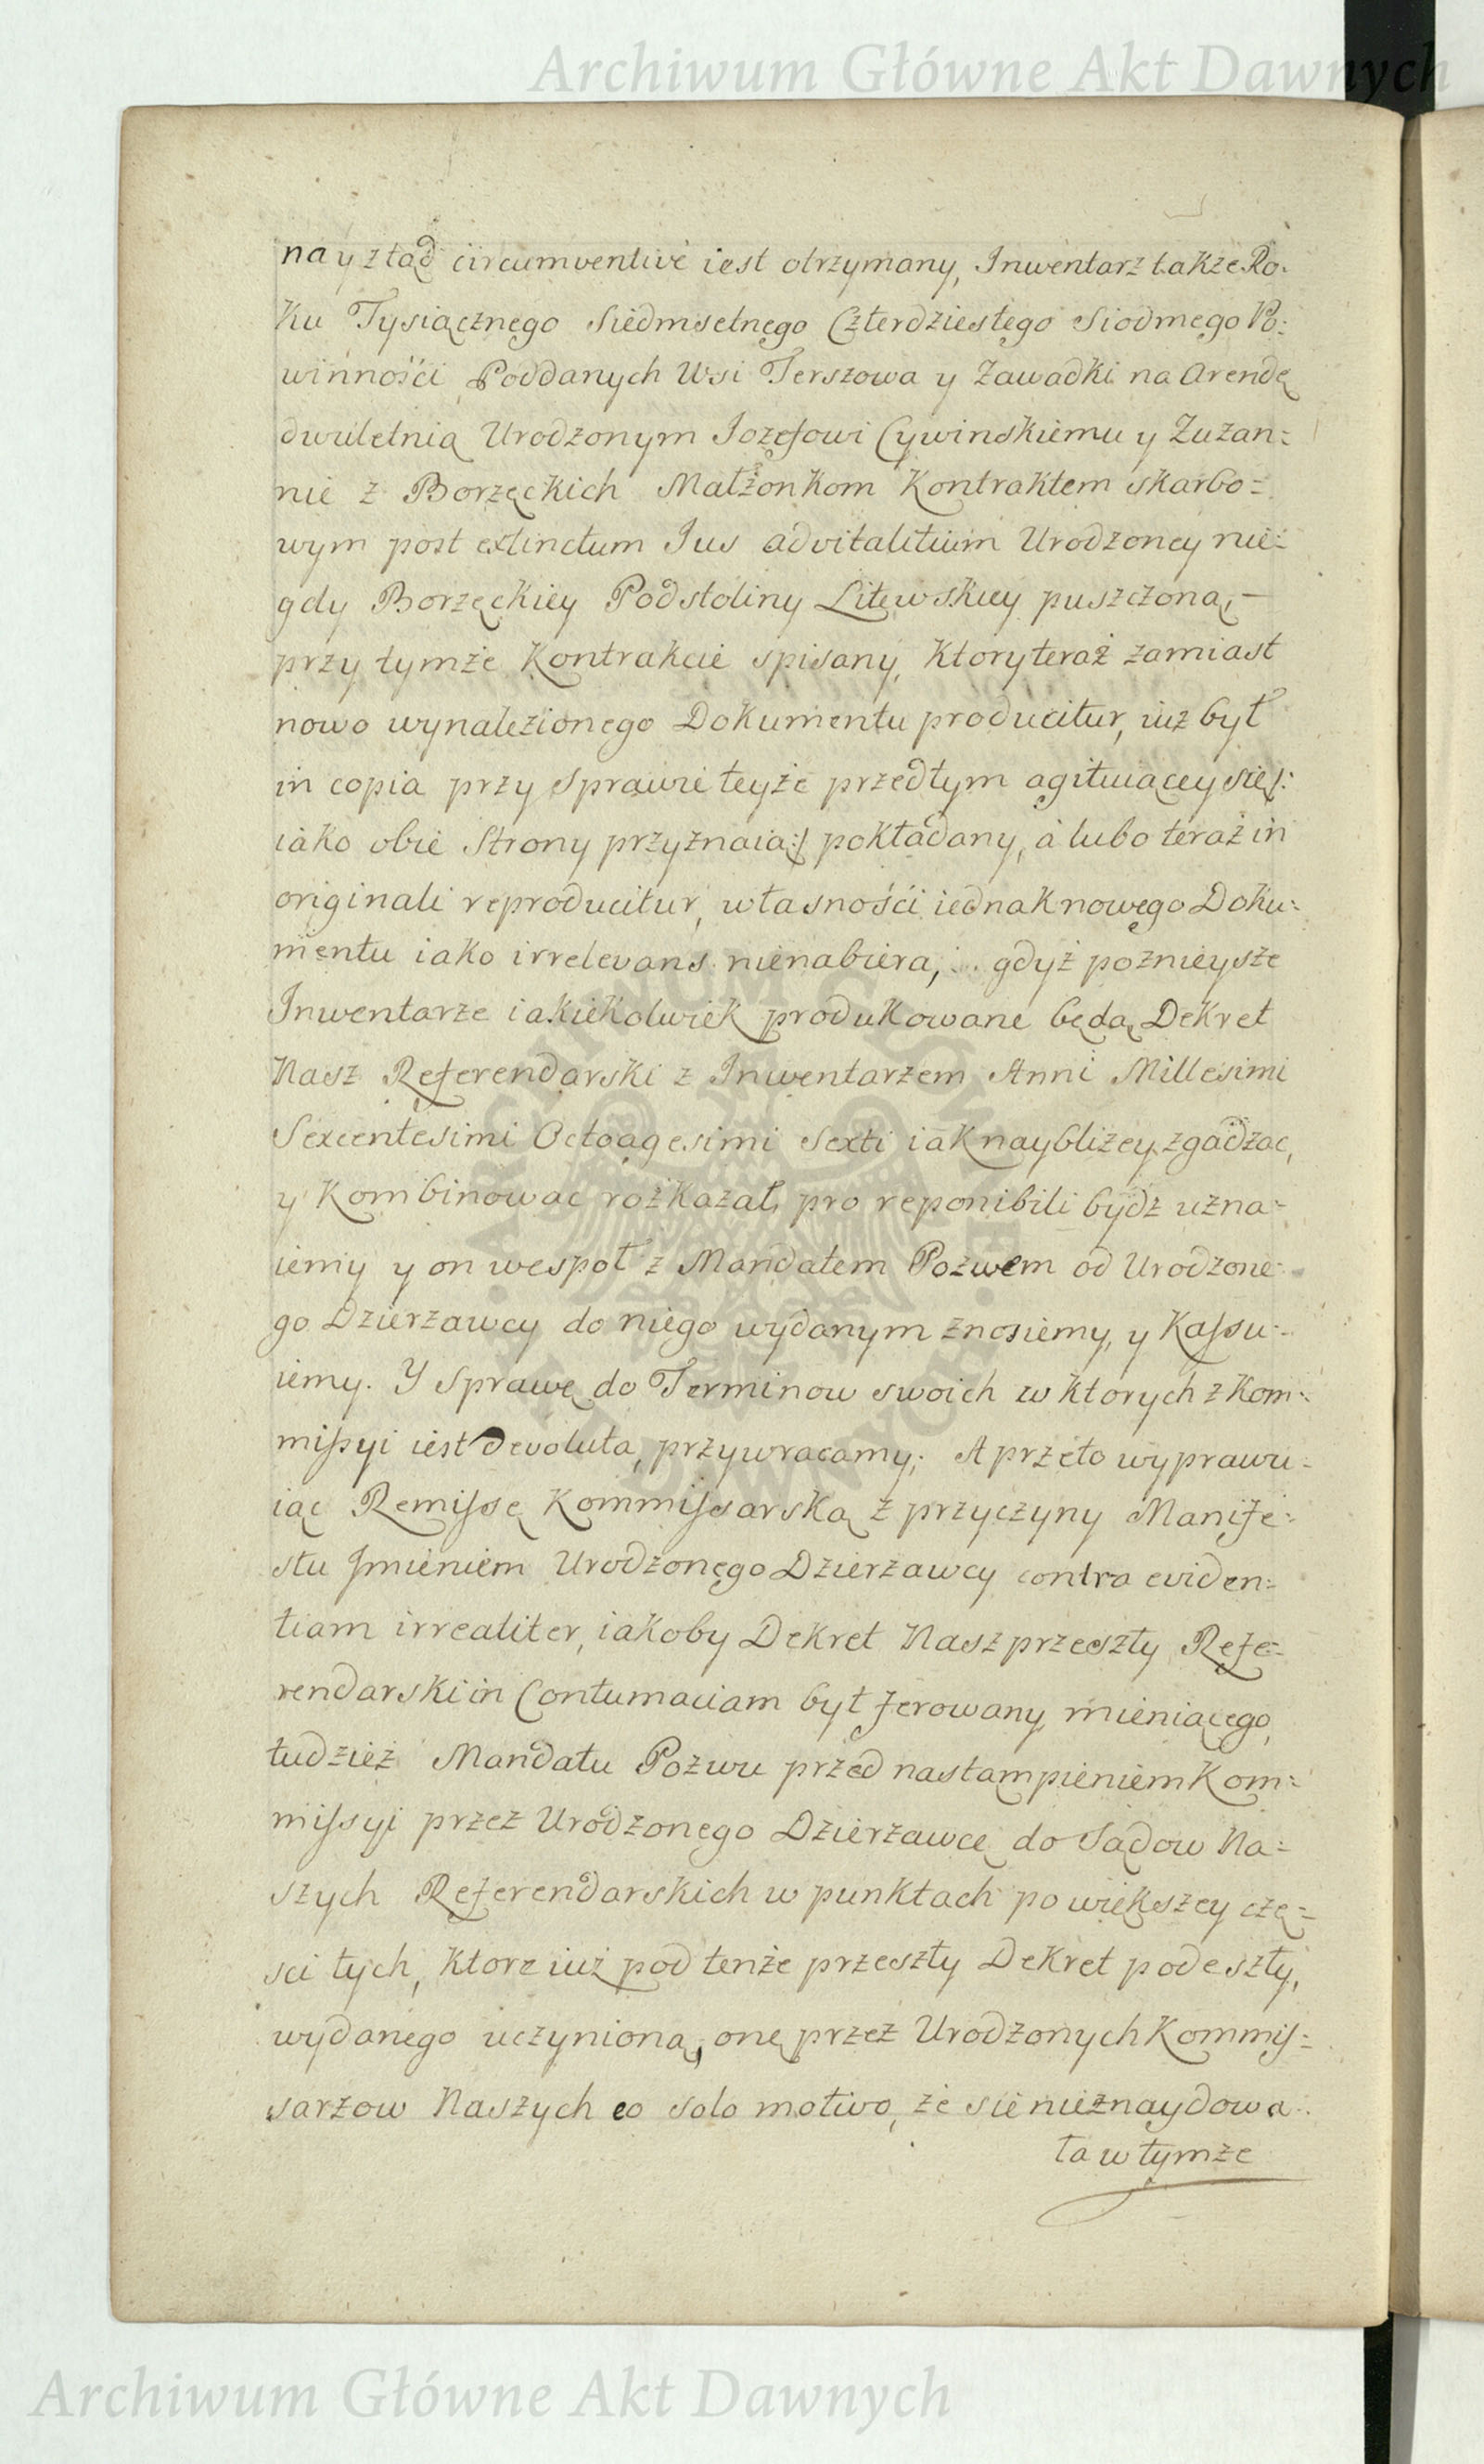 Archiwum Główne Akt Dawnych
na y ztąd circumventive iest otrzymany, Inwentarz także Ro:
ku Tysiącznego Siedmsetnego Czterdziestego Siodmego Po:
winności Poddanych Wsi Terszowa y Zawadki na Arendę
dwuletnią Urodzonym Iozefowi Cywinskiemu y Zuzan:
nie z Borzęckich Małżonkom Kontraktem skarbo=
wym post extinctum Ius advitalitium Urodzoney nie:
gdy Borzęckiey Podstoliny Litewskiey puszczoną, –
przy tymże Kontrakcie spisany, Ktory teraz zamiast
nowo wynalezionego Dokumentu producitur, iuż był
in copia przy Sprawie teyże przedtym agituiącey się /:
iako obie Strony przyznaią :/ pokładany, á lubo teraz in
originali reproducitur, własności iednak nowego Doku:
mentu iako irrelevans nienabiera, gdyż poznieysze
Inwentarze iakiekolwiek produkowane będą, Dekret
Nasz Referendarski z Inwentarzem Anni Millesimi
Sexcentesimi Octoagesimi Sexti iak naybliżey zgadzac,
y Kombinowac rozkazał, pro reponibili bydz uzna=
iemy y on wespoł z Mandatem Pozwem od Urodzone:
go Dzierzawcy do niego wydanym znosiemy, y Kassu:
iemy. Y Sprawę do Terminow swoich w ktorych z Kom:
missyi iest devoluta, przywracamy; A przeto wyprawu:
iąc Remissę Kommissarską z przyczyny Manife:
stu Imieniem Urodzonego Dzierzawcy contra eviden:
tiam irrealiter, iakoby Dekret Nasz przeszły Refe=
rendarski in Contumaciam był ferowany, mieniącego,
tudzież Mandatu Pozwu przed nastąmpieniem Kom:
missyi przez Urodzonego Dzierzawcę do Sądow Na=
szych Referendarskich w punktach po większey czę=
sci tych, Ktore iuż pod tenże przeszły Dekret podeszły,
wydanego uczynioną, onę przez Urodzonych Kommis:
sarzow Naszych eo solo motivo, że się nieznaydowa
ła w tymze
Archiwum Główne Akt Dawnych